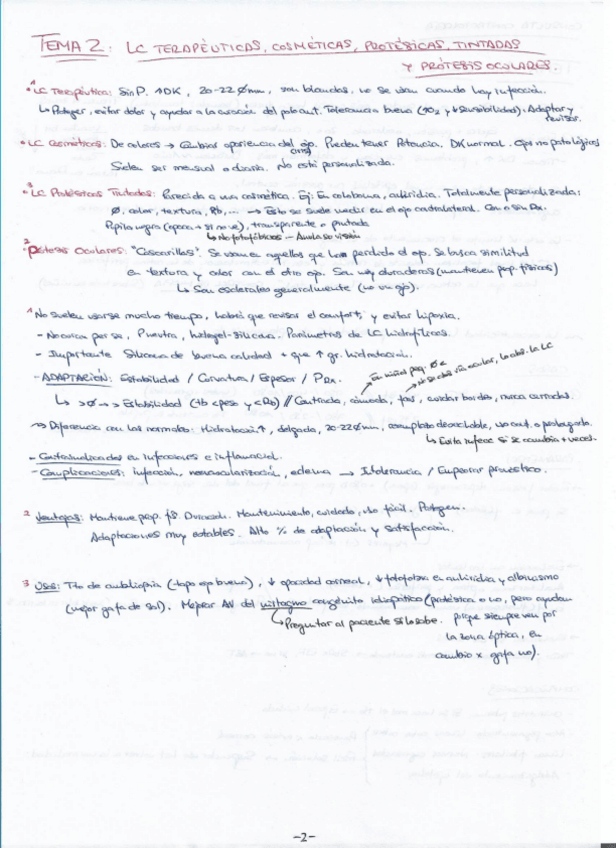 TEMA 2: LC TERAPÉUTICAS, COSMÉTICAS, PROTÉSICAS, TINTADAS
Y PRÓTESIS OCULARES.
1
• LC Terapéutica: Sin P. ↑DK, 20-22 Ømm, son blandas, no se usan cuando hay infección.
↳ Proteger, evitar dolor y ayudar a la curación del polo ant. Tolerancia buena (↑O2 y ↓sensibilidad). Adaptar y revisar.
• LC Cosméticas: De colores → Cambiar apariencia del ojo. Pueden tener Potencia. DK normal. Ojos no patológicos
Suelen ser mensual o diaria. No está personalizada.
3
• LC Protésicas Tintadas: Parecida a una cosmética. Ej: En coloboma, aniridia. Totalmente personalizada:
Ø, color, textura, Rb, ... → Esto se suele medir en el ojo contralateral. Con o sin Rx.
Pupila negra (opaca = si no ve), transparente o pintada
↳ No fotofóbicos – Anula su visión
2
• Prótesis Oculares: "Cascarillas". Se usan en aquellos que han perdido el ojo. Se busca similitud
en textura y color con el otro ojo. Son muy duraderas (mantienen prop. físicas)
↳ Son esclerales generalmente (no un ojo).
1 No suelen usarse mucho tiempo, habrá que revisar el comfort, y evitar hipoxia.
- No cura per se, P neutra, hidrogel-silicona. Parámetros de LC hidrofílicas.
- Importante Silicona de buena calidad + que ↑ gr. hidratación.
- ADAPTACIÓN: Estabilidad / Curvatura / Espesor / Rx.
↳ >Ø → > Estabilidad (Tb <peso y <Rb) // Centrada, cómoda, cuidar bordes, nunca cerradas.
⇝ Diferencia con las normales: Hidratación↑, delgada, 20-22Ømm, reemplazo desechable, uso cont. o prolongado.
↳ Evita infecc si se cambia + veces.
- Contraindicadas en infecciones e inflamación.
- Complicaciones: infección, neovascularización, edema → Intolerancia / Empeorar pronóstico.
2 Ventajas: Mantiene prop. fis. Duración. Mantenimiento, cuidado, uso fácil. Protegen.
Adaptaciones muy estables. Alto % de adaptación y satisfacción.
3 Usos: Tto de ambliopía (tapo ojo bueno), ↓ opacidad corneal, ↓ fotofobia en aniridia y albinismo
(mejor gafa de sol). Mejorar AV del nistagmo congénito idiopático (protésica o no, pero ayudan
↳ Preguntar al paciente si lo sabe. porque siempre ven por
la zona óptica, en
cambio x gafa no).
-2-